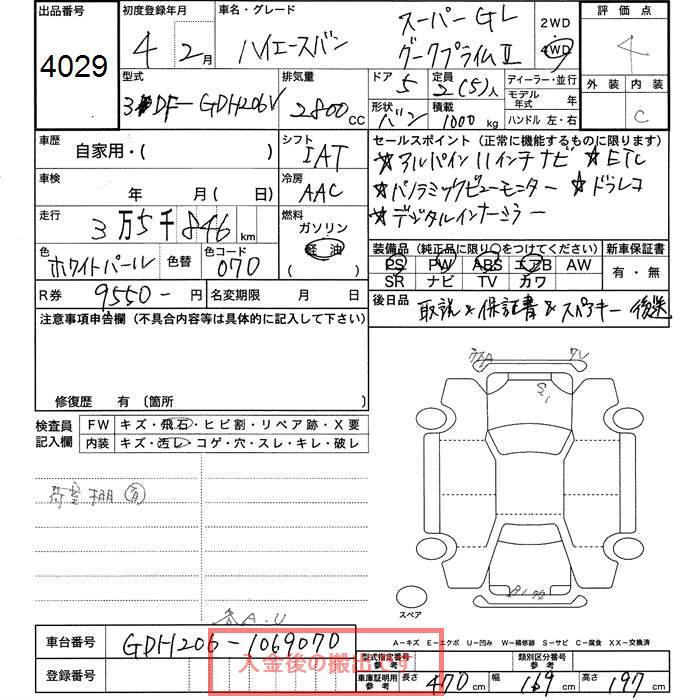 出品番号 初度登録年月 車名・グレード 評価点
4029 4年 2月 ハイエースバン スーパーGL 2WD 4
ダークプライムⅡ 4WD
型式 排気量 ドア 定員 ディーラー・並行 外装 内装
3BDF-GDH206V 2800cc 5 2(5)人 モデル年式 年 C
形状 バン 積載 1000kg ハンドル 左・右
車歴 自家用・( ) シフト IAT セールスポイント(正常に機能するものに限ります)
☆アルパイン11インチナビ ☆ETC
車検 年 月(日) 冷房 AAC ☆パノラミックビューモニター ☆ドラレコ
走行 3万5千846km 燃料 ガソリン ☆デジタルインナーミラー
軽油
( )
色 ホワイトパール 色替 色コード 070 装備品(純正品に限り○をつけてください) 新車保証書
PS PW ABS エアB AW 有・無
SR ナビ TV カワ
R券 9550-円 名変期限 月 日 後日品 取説&保証書&スペアキー後送
注意事項申告欄(不具合内容等は具体的に記入して下さい)
修復歴 有(箇所
検査員記入欄 FW キズ・飛石・ヒビ割・リペア跡・X要
内装 キズ・汚レ・コゲ・穴・スレ・キレ・破レ
荷室棚有
スペア
A.U
A-キズ E-エクボ U-凹み W-補修跡 S-サビ C-腐食 XX-交換済
車台番号 GDH206-1069070
型式指定番号 参考 類別区分番号 参考
入金後の搬出
登録番号 車庫証明用 参考 長さ 470cm 幅 169cm 高さ 197cm